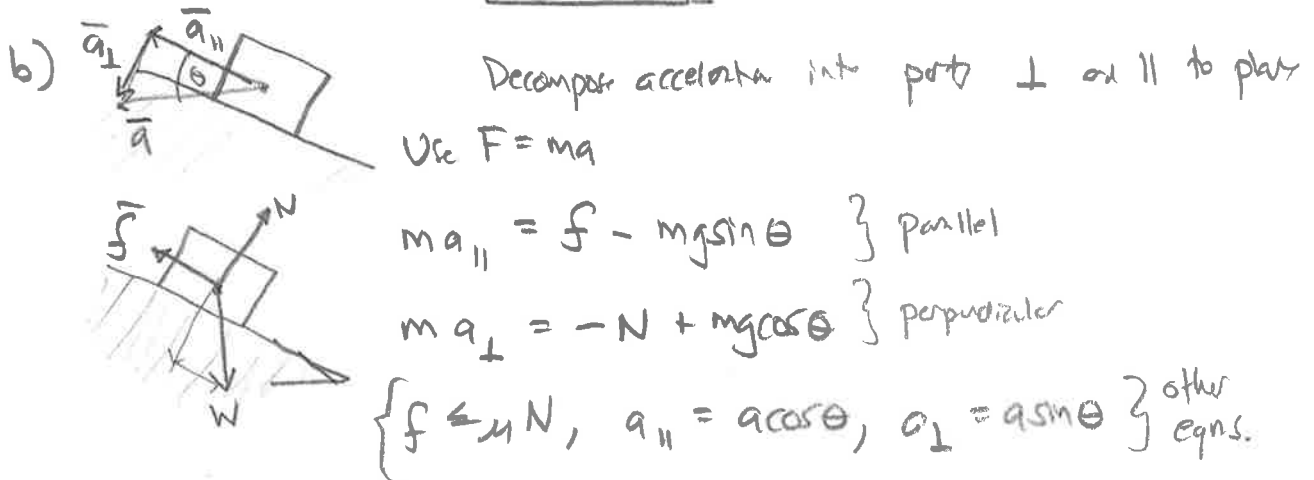 b) a̅⊥ a̅∥ θ a̅
Decompose acceleration into parts ⊥ and ∥ to plane
Use F = ma
f̅ N W
ma∥ = f - mgsinθ } parallel
ma⊥ = -N + mgcosθ } perpendicular
{ f ≤ μN, a∥ = acosθ, a⊥ = asinθ } other eqns.